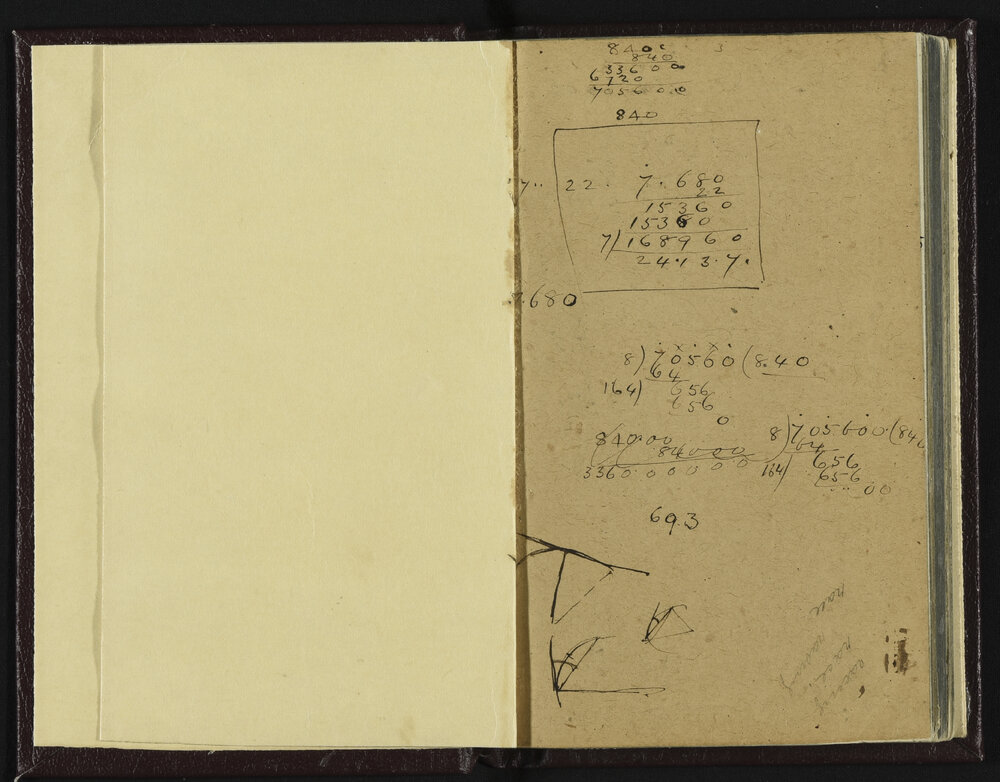 3
840
840
33600
6720
705600
840
7.. 22. 7.680
22
15360
15360
7)168960
24.13.7.
7.680
8)70560(8.40
64
164) 656
656
0
840.00
84000
33600.00000
8)705600(840
64
164) 656
656
00
693